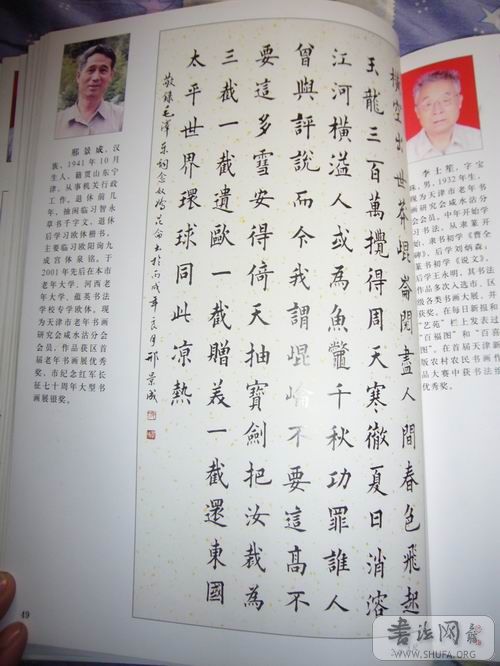 邢景成，汉
族，1941年10月
生人，籍贯山东宁
津。从事机关行政
工作。退休前几
年，抽闲临习智永
草书千字文，退休
后学习欧体楷书，
主要临习欧阳询九
成宫体泉铭。于
2001年先后在本市
老年大学、河西老
年大学、蓝英书法
学校专学欧体。现
为天津市老年书画
研究会咸水沽分会
会员。作品获区首
届老年书画展优秀
奖，市纪念红军长
征七十周年大型书
画展银奖。
橫空出世莽崐崙閱盡人間春色飛起
玉龍三百萬攪得周天寒徹夏日消溶
江河橫溢人或為魚鼈千秋功罪誰人
曾與評説而今我謂崐崘不要這高不
要這多雪安得倚天抽寶劍把汝裁為
三截一截遺歐一截贈美一截還東國
太平世界環球同此涼熱
敬錄毛澤東詞念奴嬌昆侖 於丙戌年 月邢景成
李士笙，字宝
珠，男，1932年生，
现为天津市老年书画
研究会咸水沽分会
会员，中年开始学
习书法，从隶篆开
始，隶书初学《曹全
碑》，后学刘炳森，
篆书初学《说文》，
后学王永明，其书法
作品多次入选市、区
级各类书画大展，并
获奖。在每日新报和
“艺苑”栏上发表过
“百福图”和“百
图”。在首届天津新
版农村农民书画
品大赛中获书法
优秀奖。
49
书法网
WWW.SHUFA.ORG